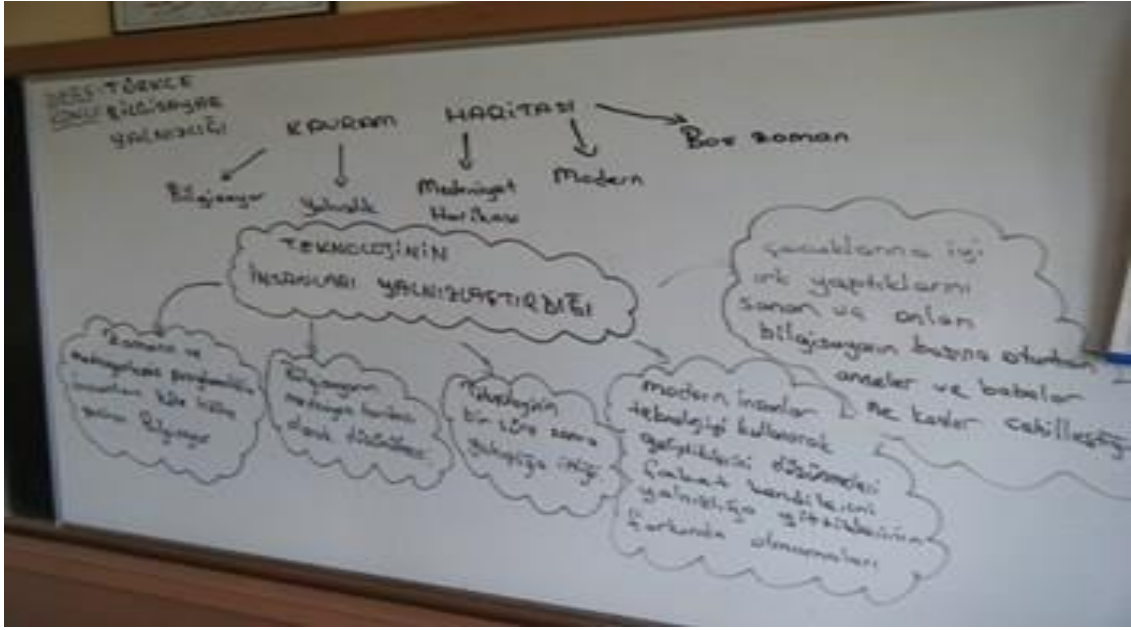 DERS: TÜRKÇE
KONU: BİLGİSAYAR
YALNIZLIĞI
KAVRAM HARİTASI
Bilgisayar
Yalnızlık
Medeniyet
Harikası
Modern
Boş zaman
TEKNOLOJİNİN
İNSANLARI YALNIZLAŞTIRDIĞI
Zamanı ve
insanları köle
Bilgisayar
Bilgisayarın
medeniyet harikası
olarak düşünülmesi
Teknolojinin
bir süre sonra
yalnızlığa ittiği
modern insanlar
teknolojiyi kullanarak
geliştiklerini düşünmeleri
fakat kendilerini
yalnızlığa ittiklerinin
farkında olmamaları
çocuklarına iyi
yaptıklarını
sanan ve onları
bilgisayarın başına oturtan
anneler ve babalar
ne kadar cahilleştiği